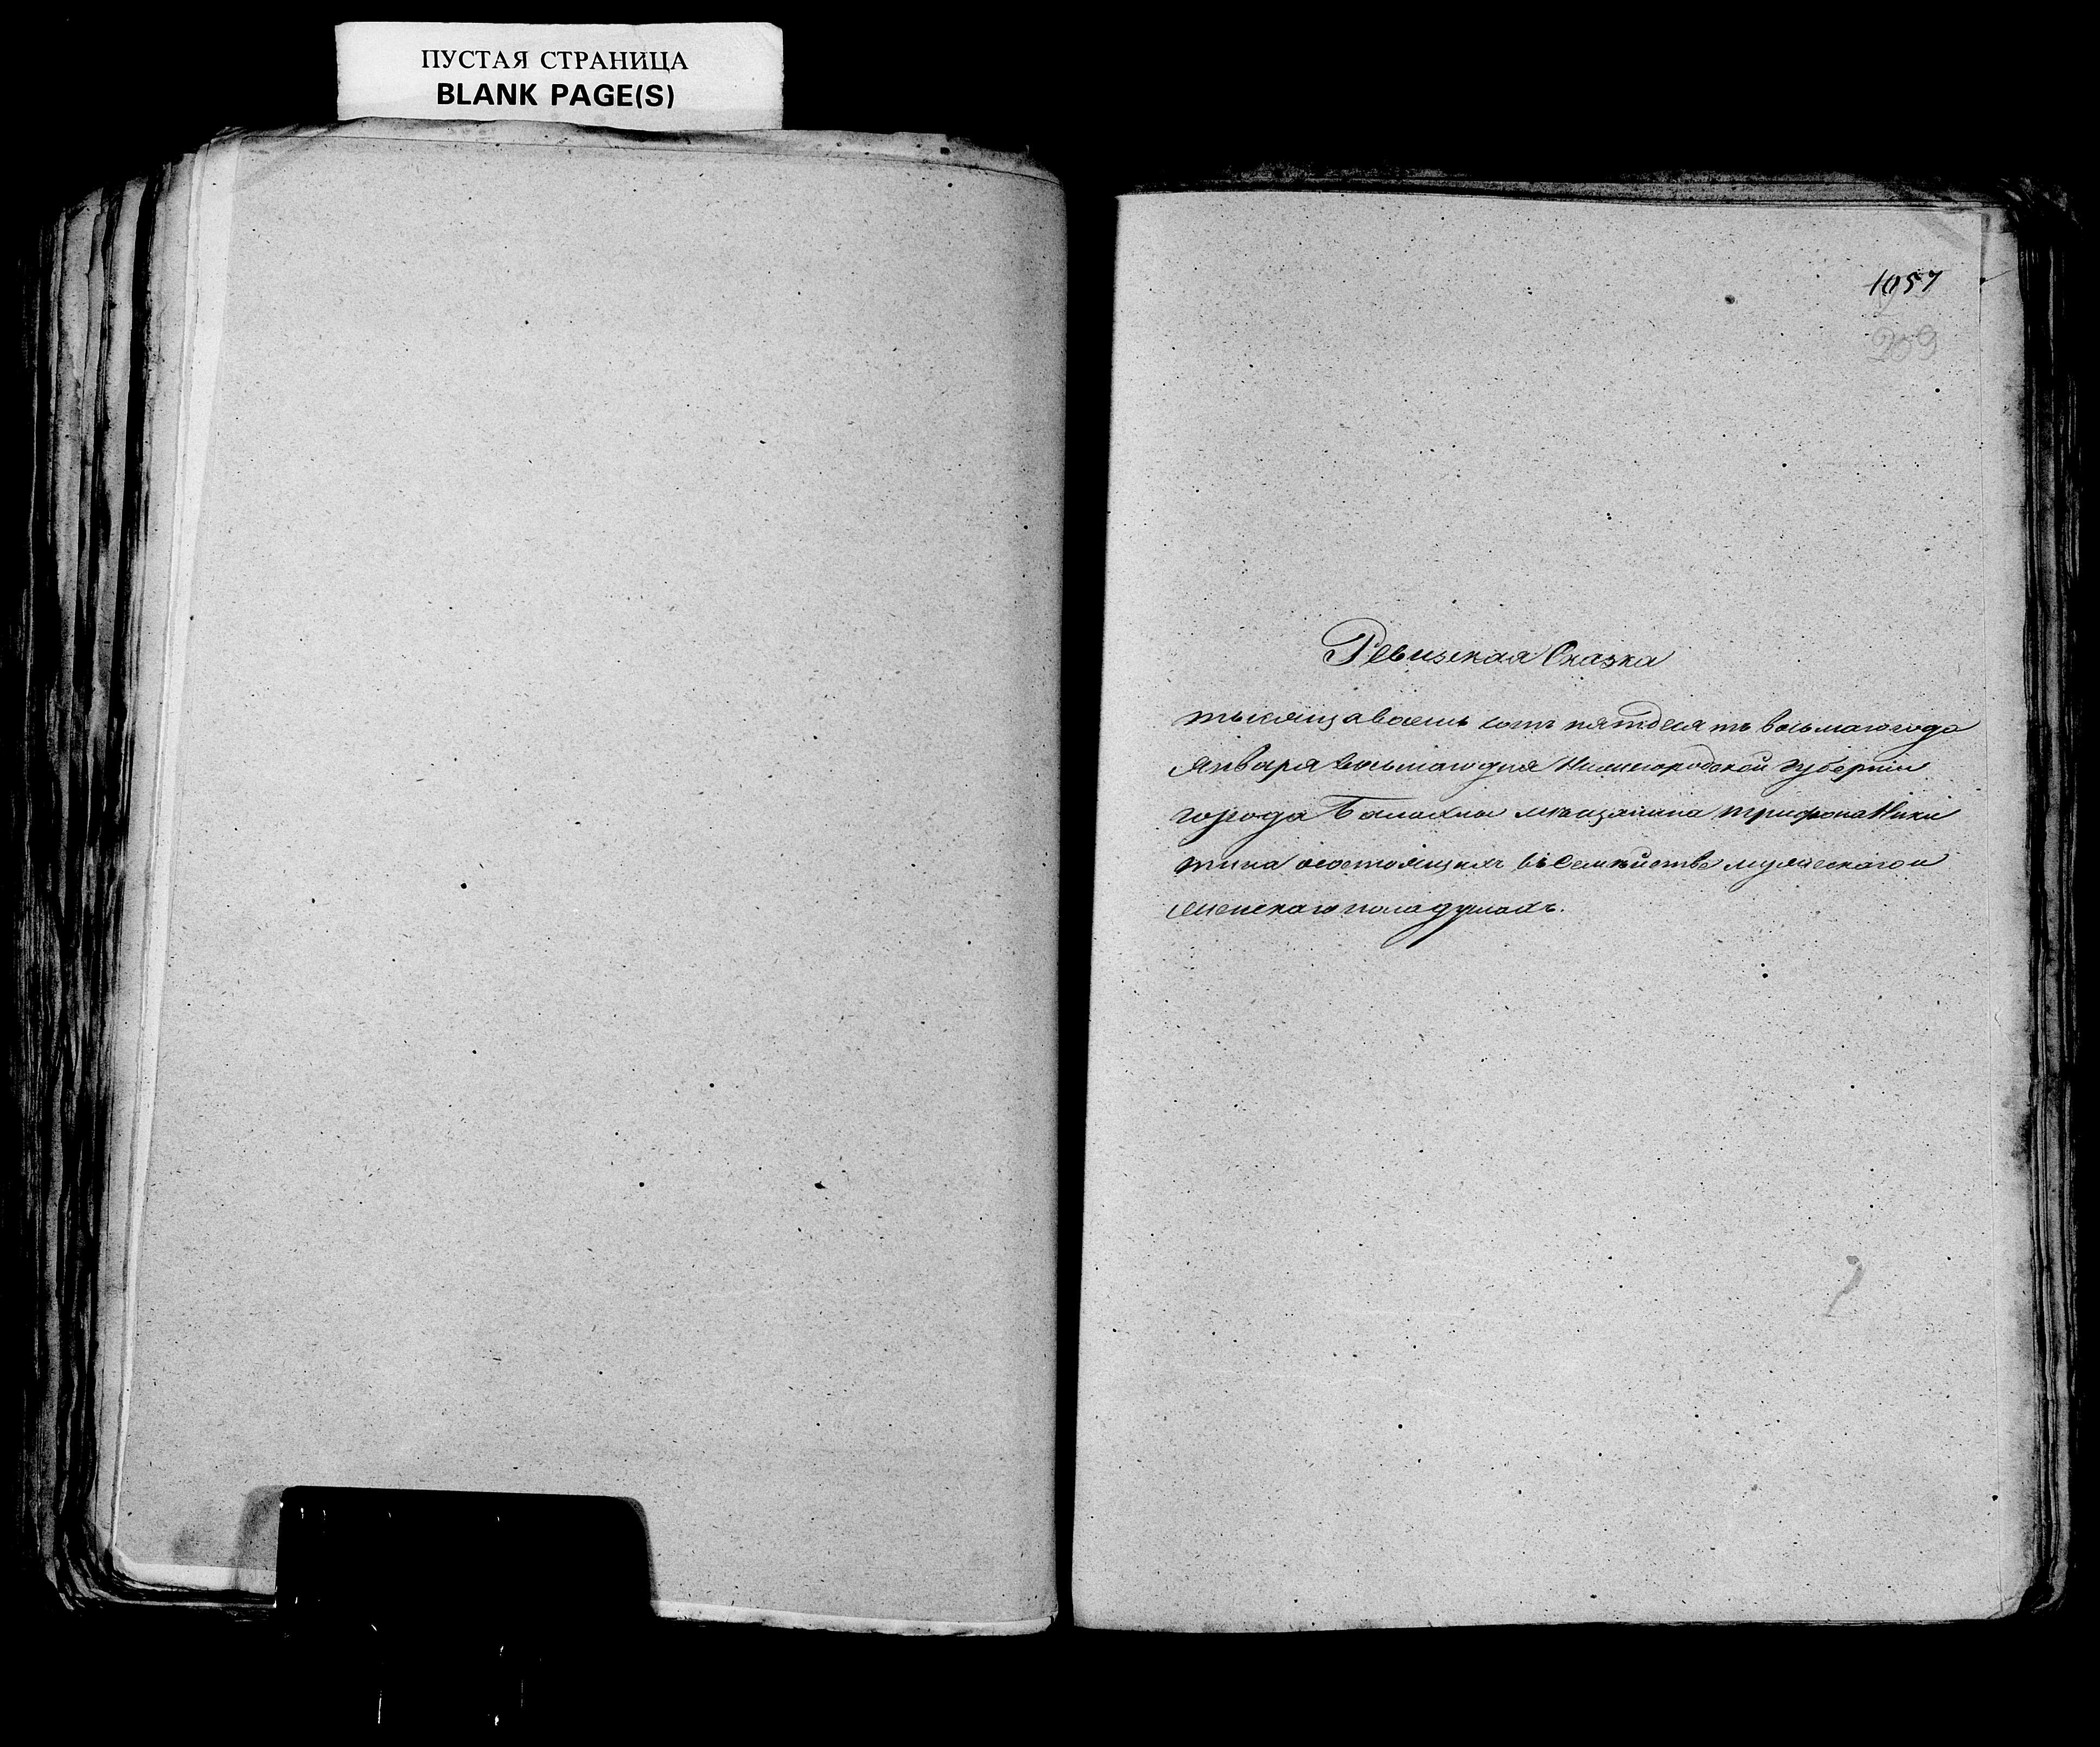 ПУСТАЯ СТРАНИЦА
BLANK PAGE(S)
1057
209
Ревизская Сказка
тысяща восемь сотъ пятдесятъ восьмаго года
Января восьмаго дня Нижегородской губернiи
города Балахны мѣщанина Трифона Ники
тина осостоящихъ въ Семѣйстве мужескаго и
женскаго пола душахъ.